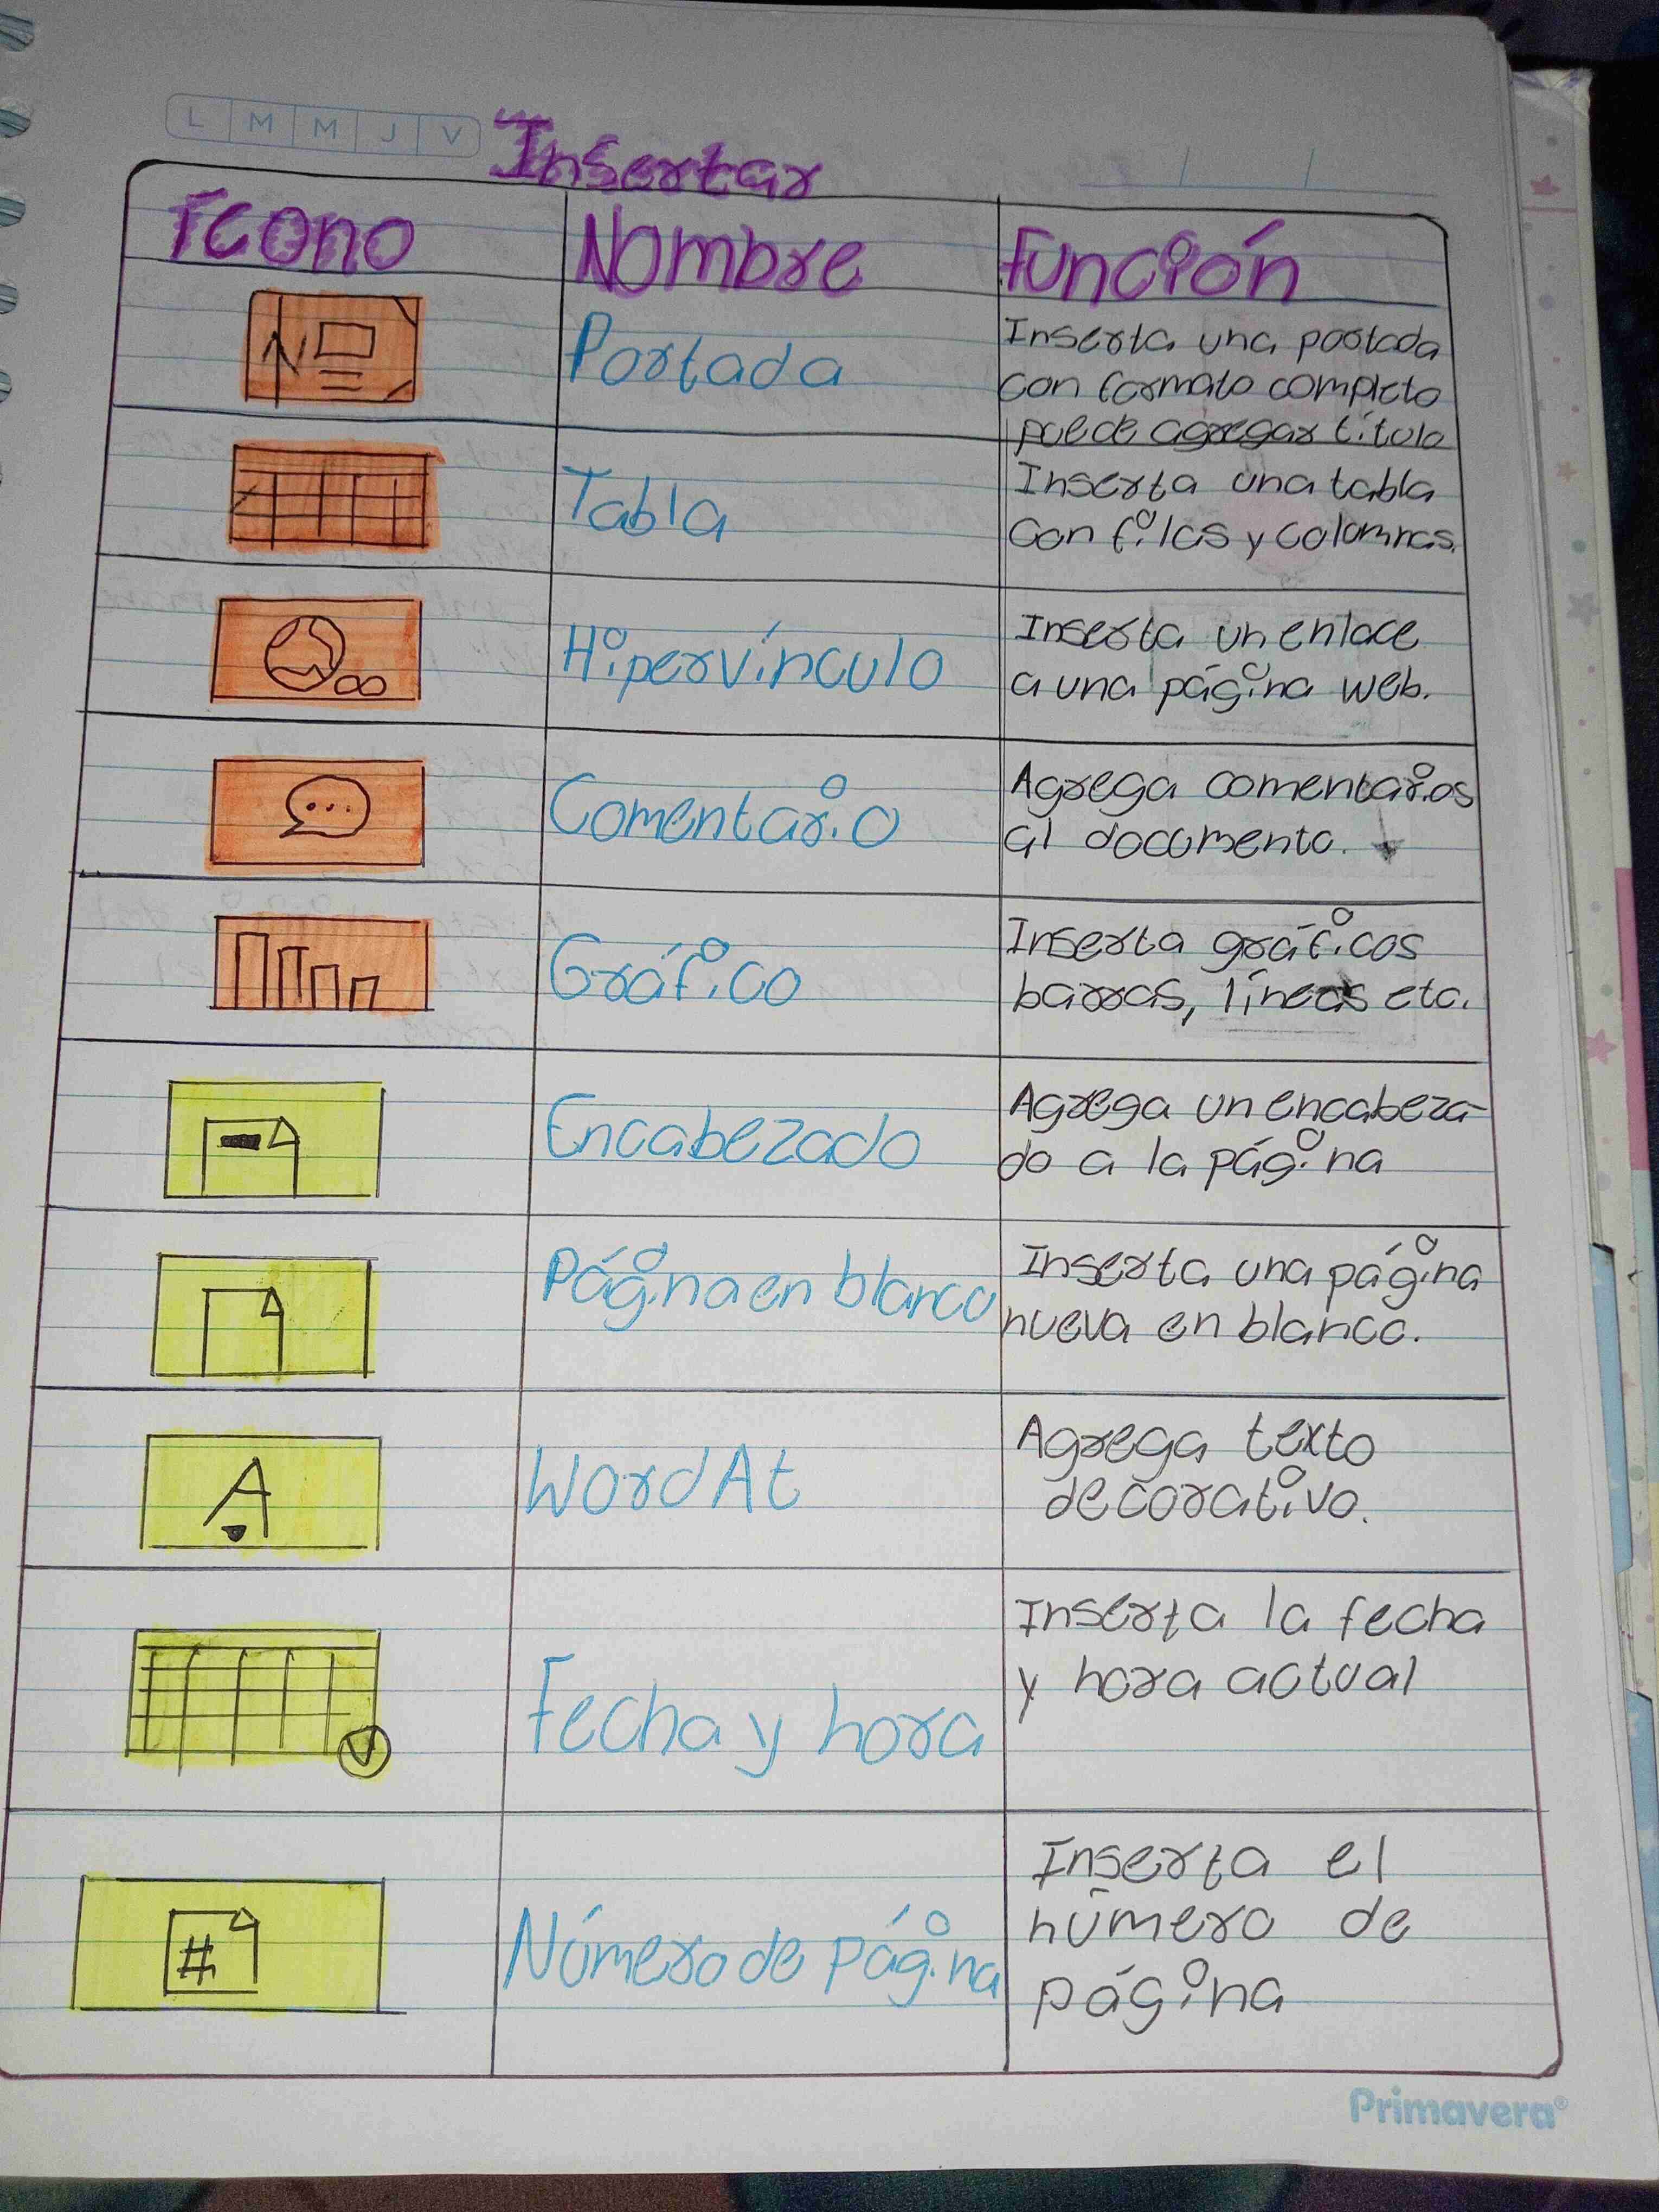 L M M J V
Insertar
Icono Nombre Función
Portada
Inserta una portada
con formato completo
puede agregar título
Tabla
Inserta una tabla
con filas y columnas.
Hipervínculo
Inserta un enlace
a una página web.
Comentario
Agrega comentarios
al documento.
Gráfico
Inserta gráficos
barras, líneas etc.
Encabezado
Agrega un encabeza-
do a la página
Página en blanco
Inserta una página
nueva en blanco.
A
WordAt
Agrega texto
decorativo.
Fecha y hora
Inserta la fecha
y hora actual
#
Número de página
Inserta el
número de
página
Primavera